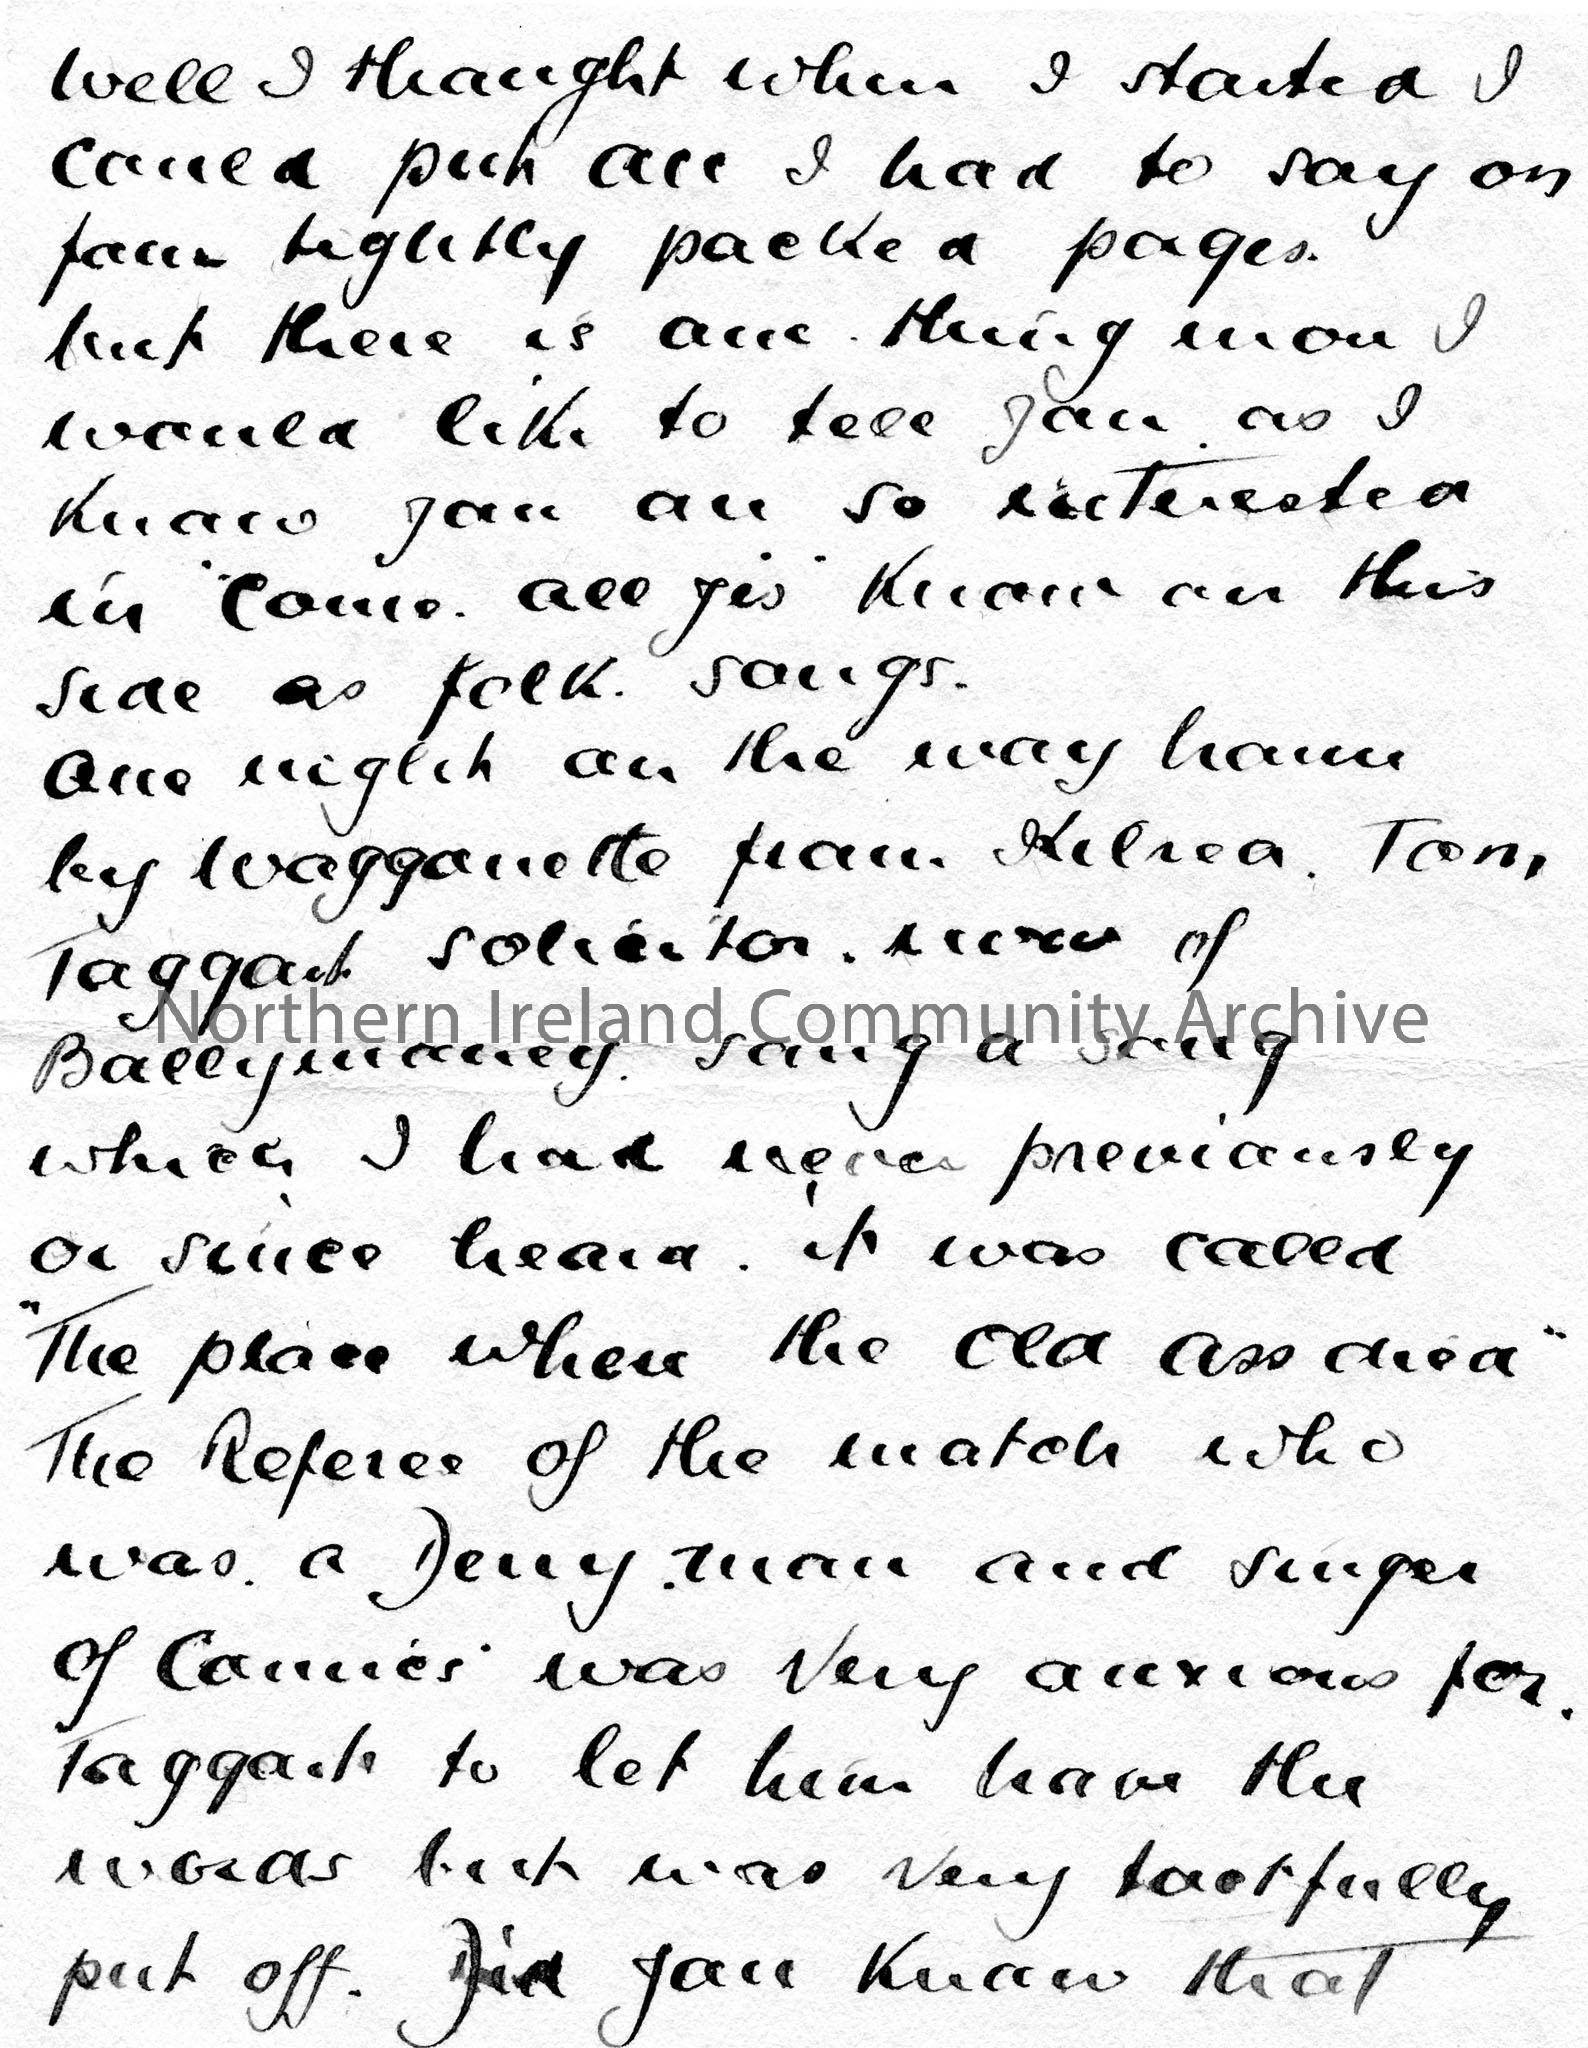 Well I thought when I started I
could put all I had to say on
four tightly packed pages.
but there is one thing more I
would like to tell you as I
know you are so interested
in "Come all yis" known on this
side as folk songs.
One night on the way home
by Waggonette from Kilrea. Tom
Taggart solicitor. now of
Northern Ireland Community Archive
Ballymoney. sang a song
which I had never previously
or since heard. it was called
"The place where the Old Ass died"
The Referee of the match who
was a Derry man and singer
of Comics was very anxious for
Taggart to let him have the
words but was very tactfully
put off. Did you know that